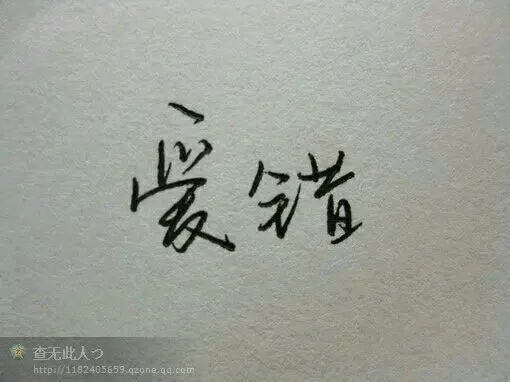 爱错
查无此人つ
http://1182405659.qzone.qq.com